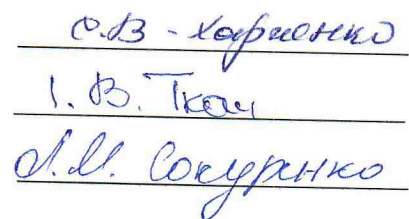 С.В. Харченко
І. В. Ткач
Л.М. Сокуренко